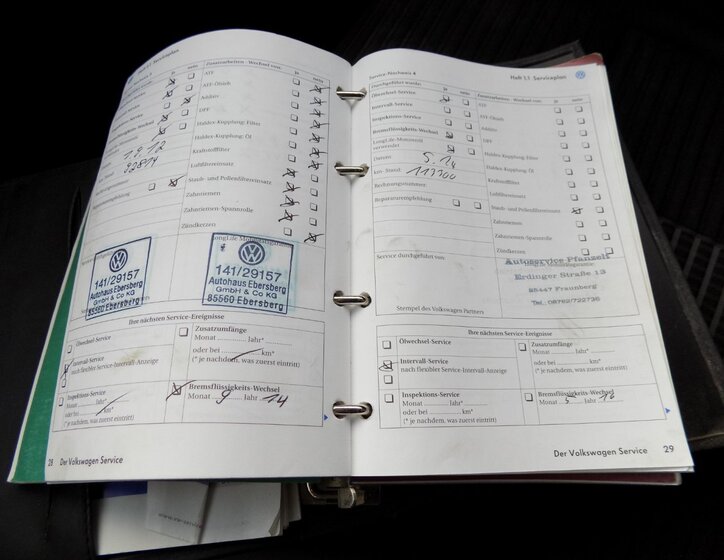 Heft 1.1 Serviceplan
ja nein
Zusatzarbeiten - Wechsel von: ja nein
ATF
ATF-Ölsieb
Additiv
DPF
Haldex-Kupplung: Filter
Haldex-Kupplung: Öl
Kraftstofffilter
Luftfiltereinsatz
Staub- und Pollenfiltereinsatz
Zahnriemen
Zahnriemen-Spannrolle
Zündkerzen
7.9.12
92814
141/29157
Autohaus Ebersberg
GmbH & Co KG
85560 Ebersberg
141/29157
Autohaus Ebersberg
GmbH & Co KG
85560 Ebersberg
Ihre nächsten Service-Ereignisse
Ölwechsel-Service
Intervall-Service
nach flexibler Service-Intervall-Anzeige
Inspektions-Service
Monat ........ Jahr*
oder bei ........ km*
(* je nachdem, was zuerst eintritt)
Zusatzumfänge
Monat ........ Jahr*
oder bei ........ km*
(* je nachdem, was zuerst eintritt)
Bremsflüssigkeits-Wechsel
Monat 9 Jahr 14
28 Der Volkswagen Service
Service-Nachweis 4
Heft 1.1 Serviceplan
Durchgeführt wurde: ja nein
Ölwechsel-Service
Intervall-Service
Inspektions-Service
Bremsflüssigkeits-Wechsel
LongLife-Motorenöl
verwendet
Datum: 5.14
km-Stand: 113300
Rechnungsnummer:
Reparaturempfehlung
Zusatzarbeiten - Wechsel von: ja nein
ATF
ATF-Ölsieb
Additiv
DPF
Haldex-Kupplung: Filter
Haldex-Kupplung: Öl
Kraftstofffilter
Luftfiltereinsatz
Staub- und Pollenfiltereinsatz
Zahnriemen
Zahnriemen-Spannrolle
Zündkerzen
Service durchgeführt von:
Autoservice Pfanzelt
Erdinger Straße 13
85447 Fraunberg
Tel. 08762/722736
Stempel des Volkswagen Partners
Ihre nächsten Service-Ereignisse
Ölwechsel-Service
Intervall-Service
nach flexibler Service-Intervall-Anzeige
Inspektions-Service
Monat ........ Jahr*
oder bei ........ km*
(* je nachdem, was zuerst eintritt)
Zusatzumfänge
Monat ........ Jahr*
oder bei ........ km*
(* je nachdem, was zuerst eintritt)
Bremsflüssigkeits-Wechsel
Monat 5 Jahr 16
Der Volkswagen Service 29